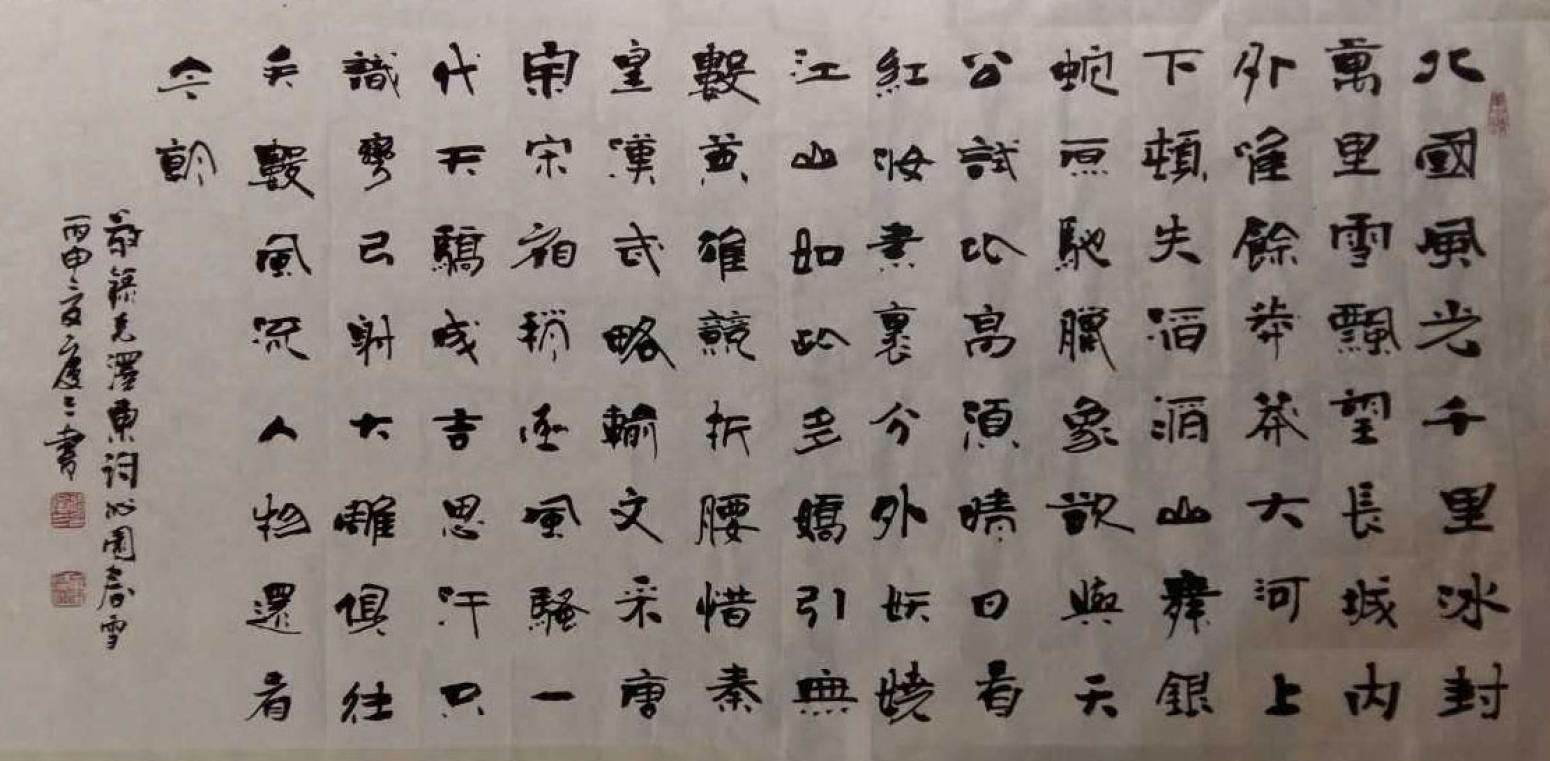 北國風光千里冰封
萬里雪飄望長城內
外唯餘莽莽大河上
下頓失滔滔山舞銀
蛇原馳臘象欲與天
公試比高須晴日看
紅妝素裹分外妖嬈
江山如此多嬌引無
數英雄競折腰惜秦
皇漢武略輸文采唐
宗宋祖稍遜風騷一
代天驕成吉思汗只
識彎弓射大雕俱往
矣數風流人物還看
今朝
敬錄毛澤東詞沁園春雪
丙申之夏慶書